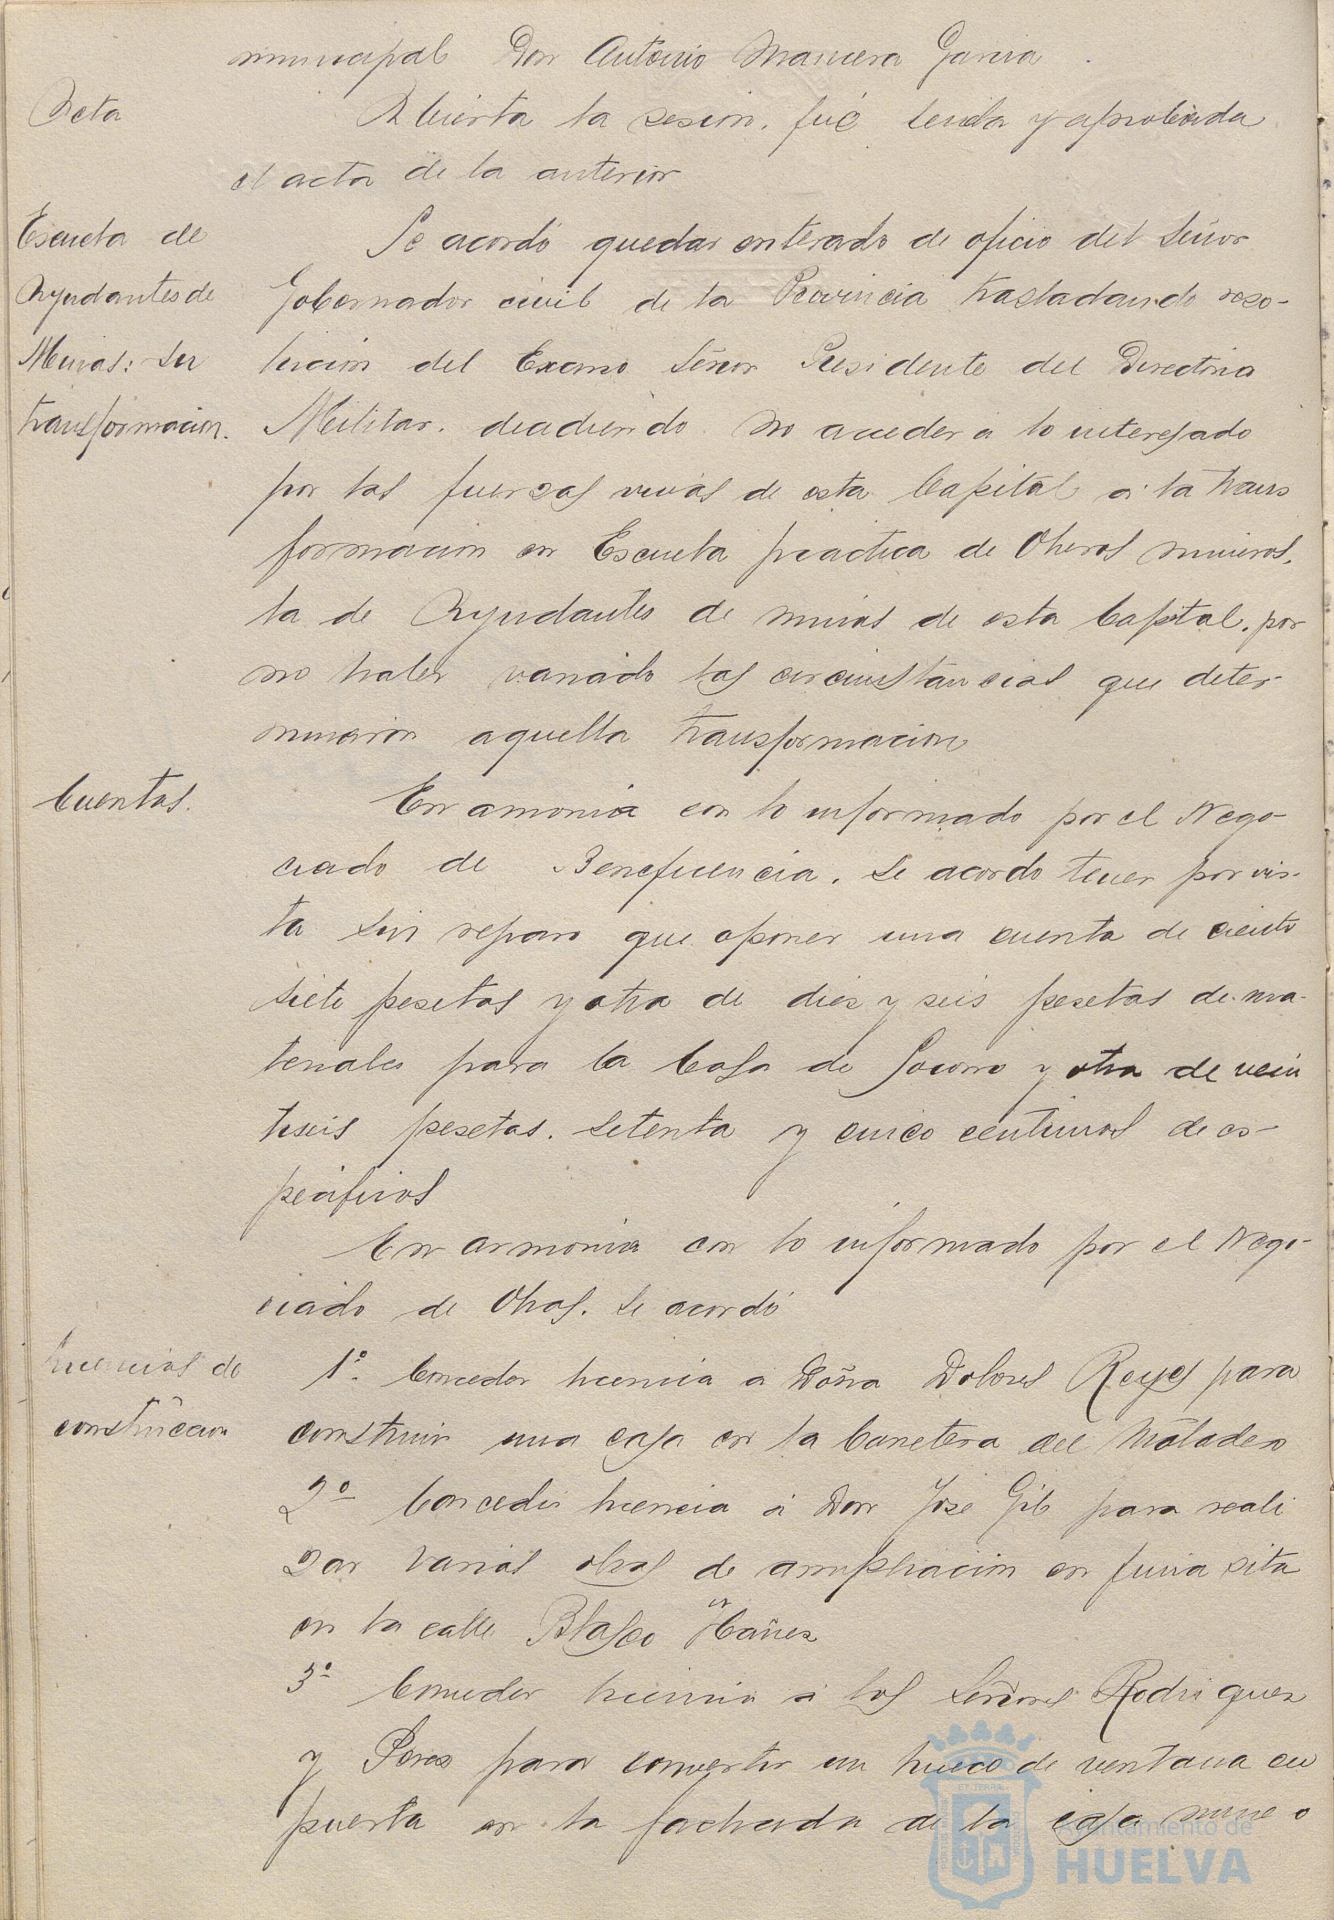 municipal Don Antonio Mancera Garcia
Acta
Abierta la sesion, fué leida y aprobada
el acta de la anterior
Escuela de
Ayudantes de
Minas: su
transformacion.
Se acordó quedar enterado de oficio del Señor
Gobernador civil de la Provincia trasladando reso-
lucion del Excmo Señor Presidente del Directorio
Militar, decidiendo no acceder a lo interesado
por las fuerzas vivas de esta Capital a la trans
formacion en Escuela practica de Obreros mineros,
la de Ayudantes de minas de esta Capital, por
no haber variado las circunstancias que deter-
minaron aquella transformacion
Cuentas.
En armonia con lo informado por el Nego-
ciado de Beneficencia, se acordo tener por vis-
ta sin reparo que oponer una cuenta de ciento
siete pesetas y otra de diez y seis pesetas de ma-
teriales para la Casa de Socorro y otra de vein
tiseis pesetas, setenta y cinco centimos de es-
pecificos
En armonia con lo informado por el Nego-
ciado de Obras, se acordó
Licencias de
construccion
1º. Conceder licencia a Doña Dolores Reyes para
construir una casa en la Carretera del Matadero
2º Conceder licencia a Don Jose Gil para reali
zar varias obras de ampliacion en finca sita
en la calle Blasco Ibañez
3º Conceder licencia a los Señores Rodriguez
y Perez para convertir un hueco de ventana en
puerta en la fachada de la casa numero
Ayuntamiento de
HUELVA